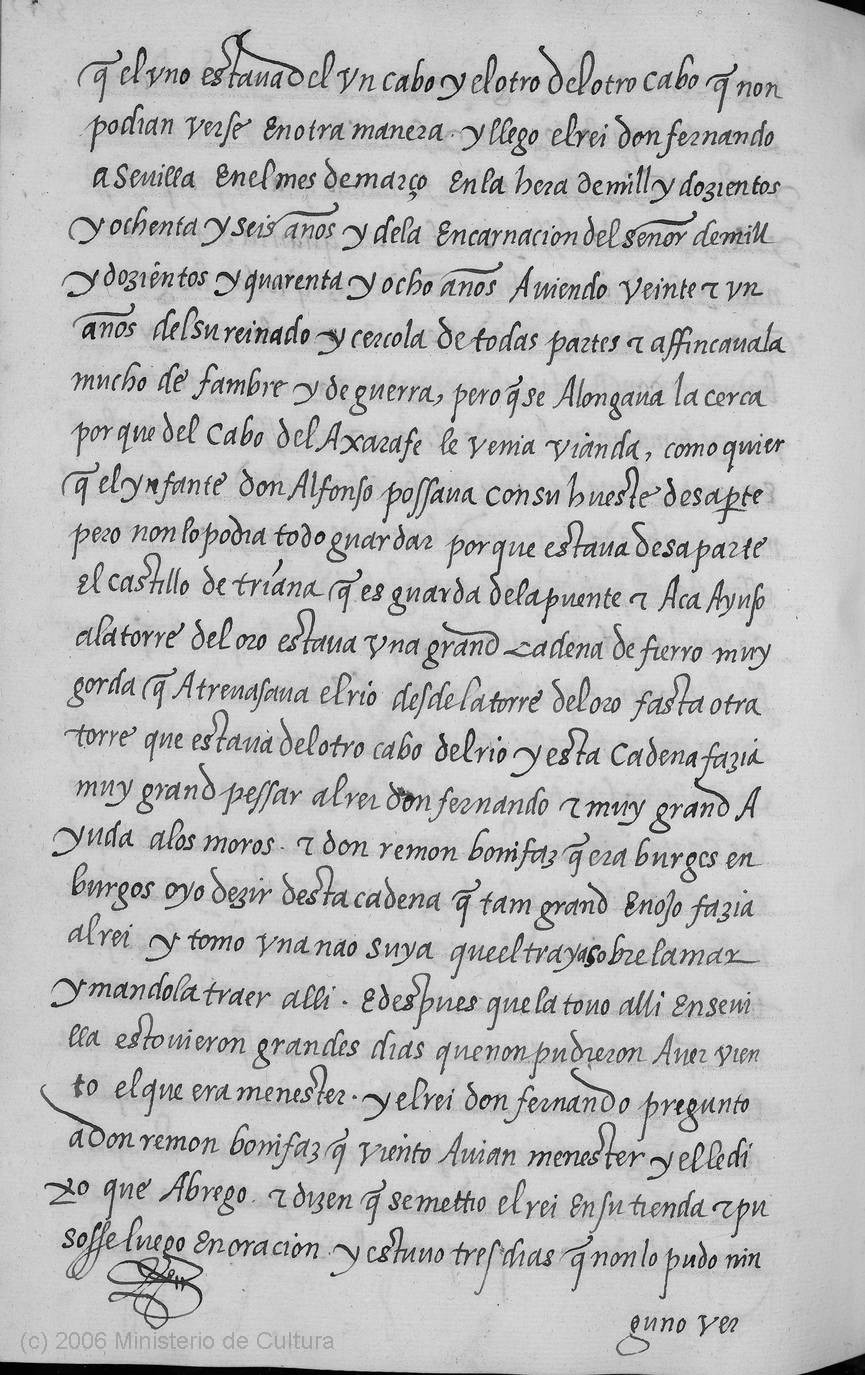 q̃ el vno estaua del vn cabo y el otro del otro cabo q̃ non
podian verse en otra manera. y llego el rei don fernando
a Seuilla En el mes de março En la hera de mill y dozientos
y ochenta y seis años y de la Encarnacion del señor de mill
y doziẽntos y quarenta y ocho años Auiendo veinte τ vn
años del su reinado y cercola de todas partes τ affincauala
mucho de fambre y de guerra, pero q̃ se Alongaua la cerca
por que del Cabo del Axarafe le venia vianda, como quier
q̃ el ynfante don Alfonso possaua con su hueste desaꝑte
pero non lo podia todo guardar por que estaua desaparte
El castillo de triana q̃ es guarda de la puente τ Aca Ayuso
a la torre del oro estaua vna grand cadena de fierro muy
gorda q̃ Atreuasaua el rio desde la torre del oro fasta otra
torre que estaua del otro cabo del rio y esta Cadena fazia
muy grand pessar al rei don fernando τ muy grand A
yuda a los moros. τ don remon bonifaz q̃ era burges en
burgos oyo dezir desta cadena q̃ tam grand Enojo fazia
al rei y tomo vna nao suya que el traya sobre la mar
y mandola traer alli. E despues que la touo alli En seui
lla estouieron grandes dias que non pudieron Auer vien
to el que era menester. y el rei don fernando pregunto
a don remon bonifaz q̃ viento Auian menester y el le di
xo que Abrego. τ dizen q̃ se mettio el rei En su tienda τ pu
sosse luego En oracion y estuuo tres dias q̃ non lo pudo nin
guno ver
(c) 2006 Ministerio de Cultura